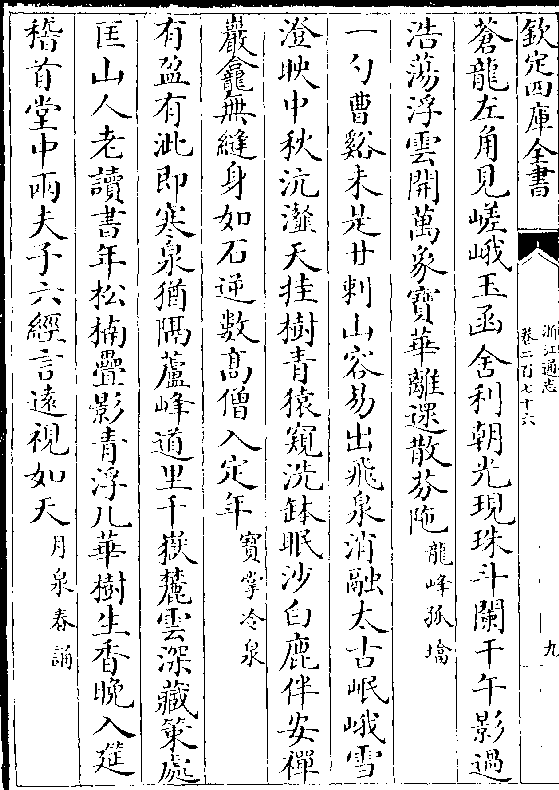 欽定四庫全書
浙江通志
卷二百七十六
九
蒼龍左角見嵯峨玉函舍利朝光現珠斗闌干午影過
浩蕩浮雲開萬象寶華離還散芬陁龍峰孤塔
一勺曹谿未是甘刺山容易出飛泉消融太古岷峨雪
澄映中秋沆瀣天挂樹青猿窺洗鉢眠沙白鹿伴安禪
巖龕無縫身如石逆數髙僧入定年寶掌冷泉
有盈有泚即寒泉猶隔蘆峰道里千嶽麓雲深藏䇿處
匡山人老讀書年松楠疊影青浮几華樹生香晚入筵
稽首堂中兩夫子六經言遠視如天月泉春誦